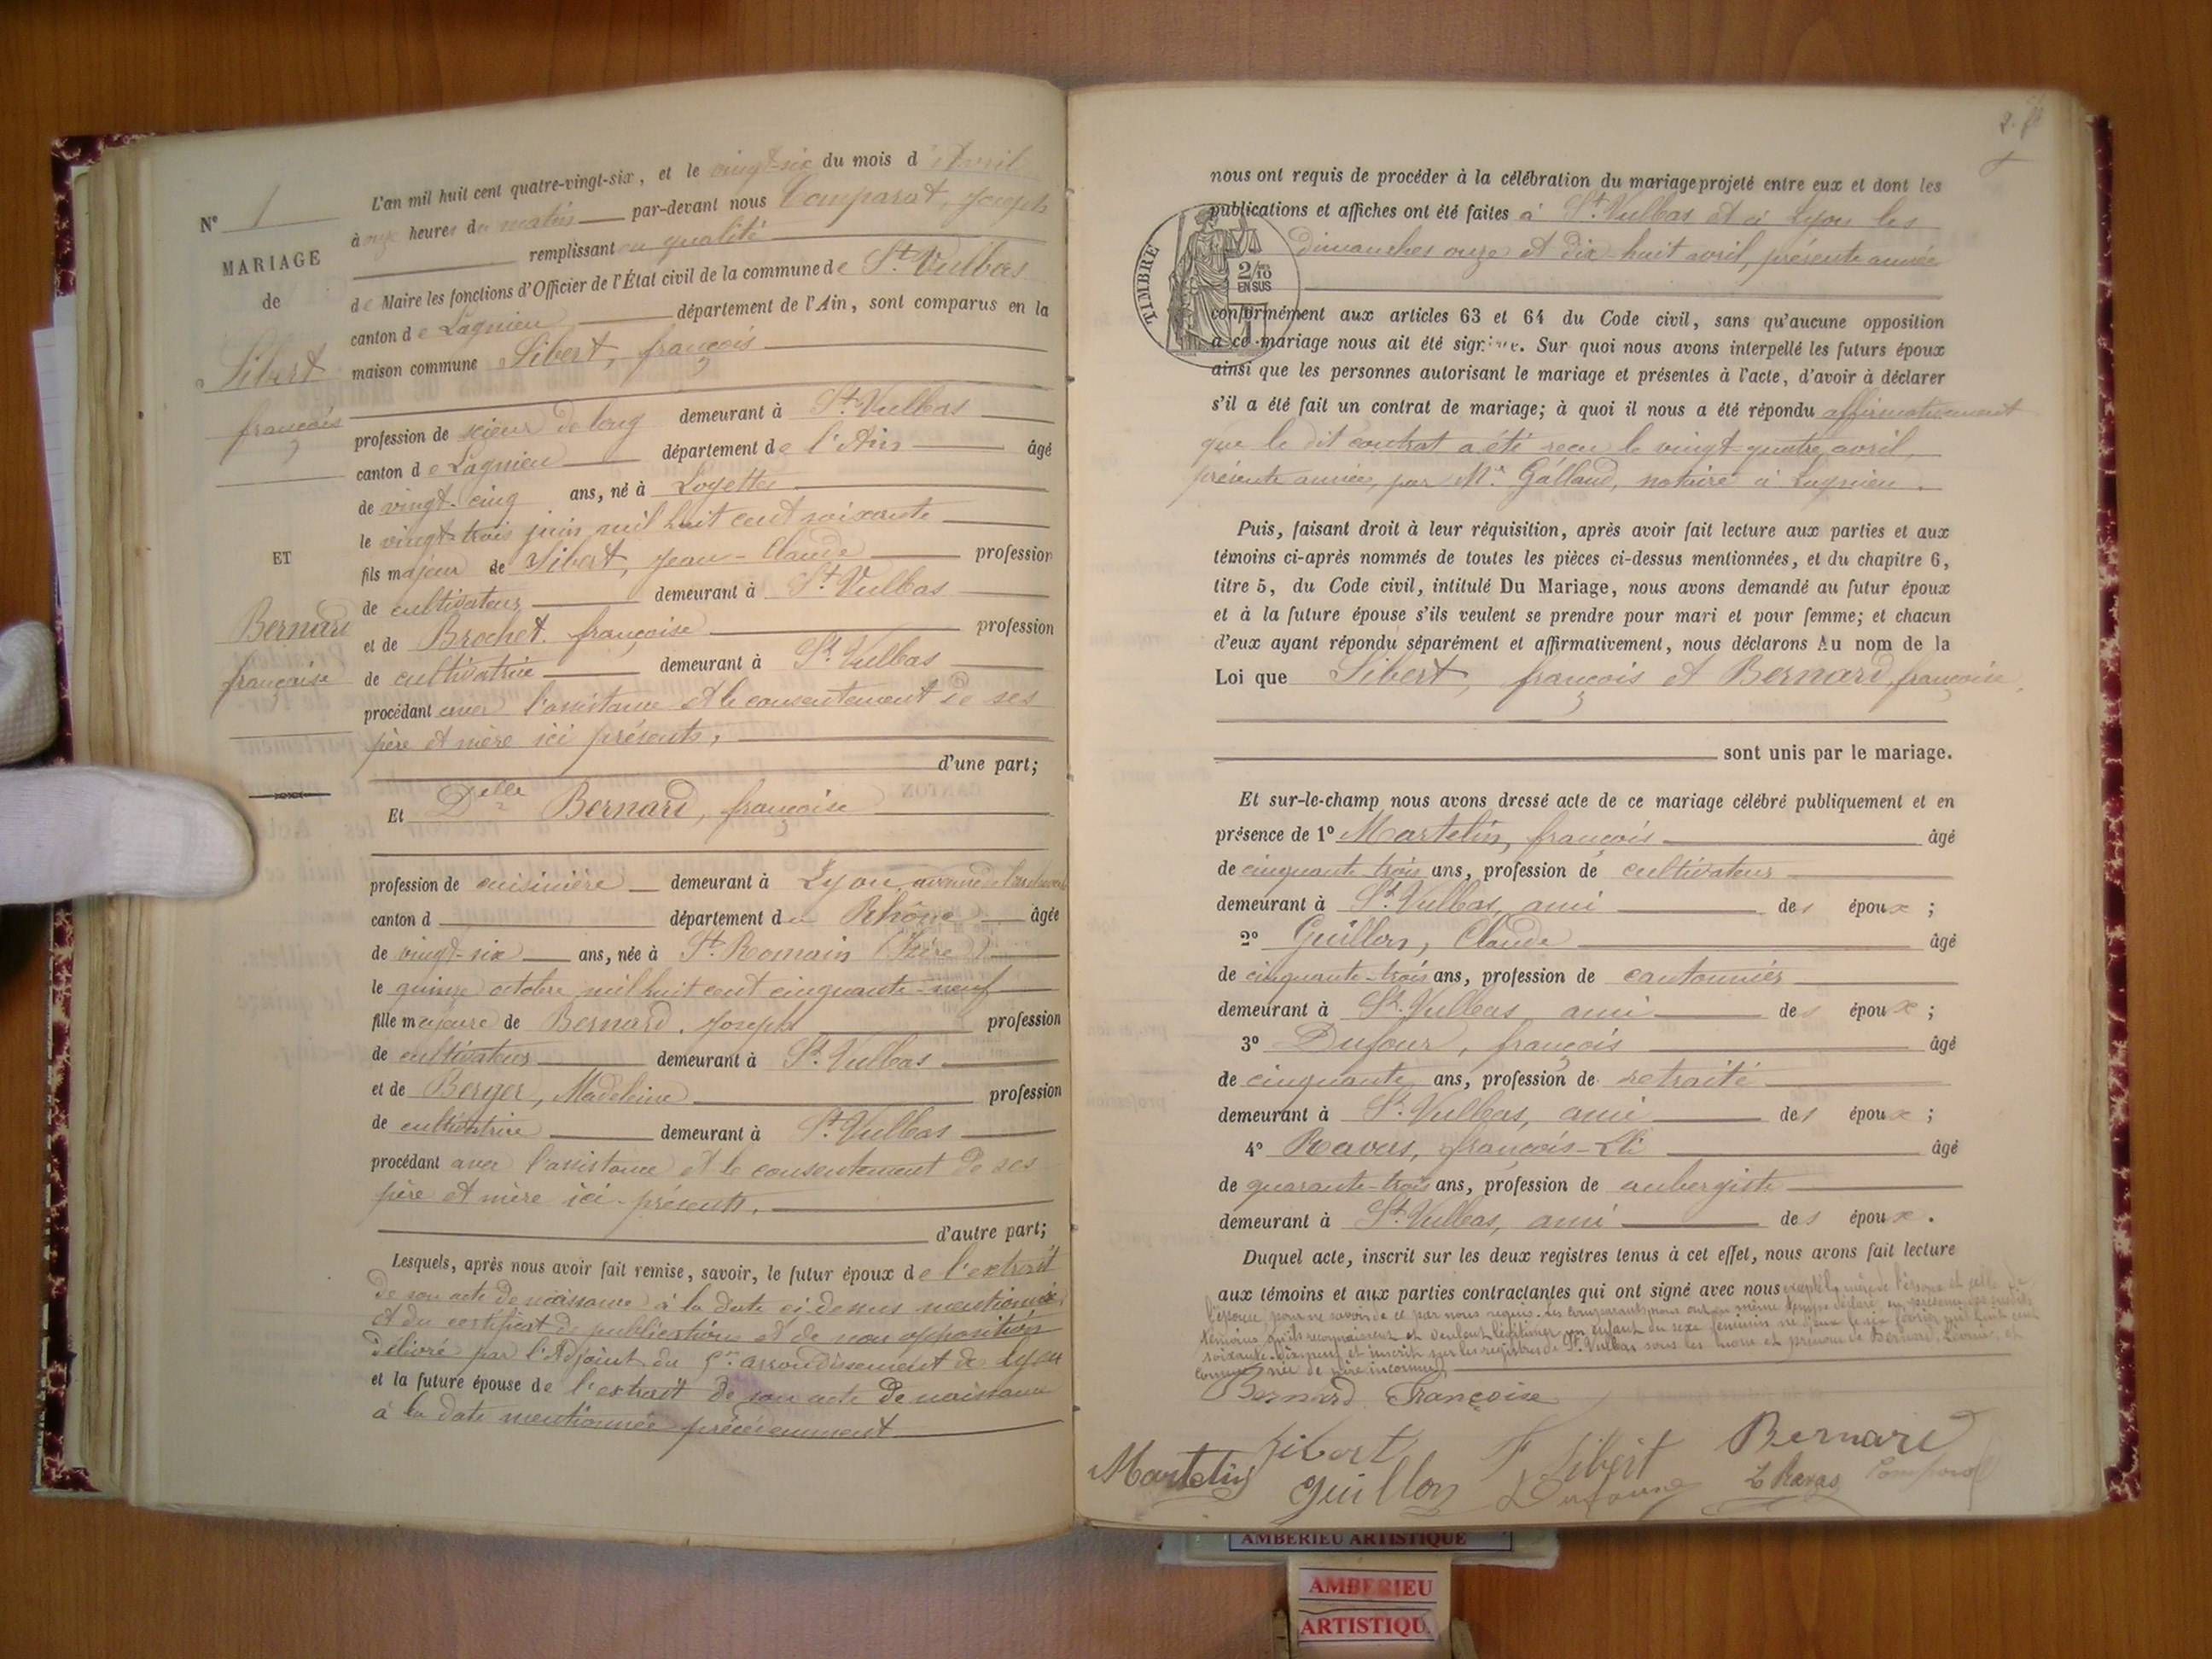 L'an mil huit cent quatre-vingt-six, et le vingt-six du mois d'Avril
à onze heures du matin par-devant nous Comparat, Joseph
remplissant en qualité
de Maire les fonctions d'Officier de l'État civil de la commune de St. Vulbas
canton de Lagnieu département de l'Ain, sont comparus en la
maison commune Sibert, françois
profession de scieur de long demeurant à St. Vulbas
canton de Lagnieu département de l'Ain âgé
de vingt-cinq ans, né à Loyettes
le vingt-trois juin mil huit cent soixante
fils majeur de Sibert, Jean-Claude profession
de cultivateur demeurant à St. Vulbas
et de Brochet françoise profession
de cultivatrice demeurant à St. Vulbas
procédant avec l'assistance et le consentement de ses
père et mère ici présents,
d'une part;
Et Delle Bernard, françoise
profession de cuisinière demeurant à Lyon
canton d département du Rhône âgée
de vingt-six ans, née à St. Romain (Isère)
le quinze octobre mil huit cent cinquante-neuf
fille majeure de Bernard, Joseph profession
de cultivateur demeurant à St. Vulbas
et de Berger, Madeleine profession
de cultivatrice demeurant à St. Vulbas
procédant avec l'assistance et le consentement de ses
père et mère ici présents,
d'autre part;
Lesquels, après nous avoir fait remise, savoir, le futur époux de l'extrait
de son acte de naissance à la date ci-dessus mentionnée,
et du certificat de publications et de non opposition
délivré par l'Adjoint du 5me arrondissement de Lyon
et la future épouse de l'extrait de son acte de naissance
à la date mentionnée précédemment
No 1
MARIAGE
de
Sibert
françois
ET
Bernard
françoise
nous ont requis de procéder à la célébration du mariage projeté entre eux et dont les
publications et affiches ont été faites à St. Vulbas et à Lyon les
dimanches onze et dix huit avril, présente année
TIMBRE
2/10
EN SUS
conformément aux articles 63 et 64 du Code civil, sans qu'aucune opposition
à ce mariage nous ait été signifiée. Sur quoi nous avons interpellé les futurs époux
ainsi que les personnes autorisant le mariage et présentes à l'acte, d'avoir à déclarer
s'il a été fait un contrat de mariage; à quoi il nous a été répondu affirmativement
que le dit contrat a été reçu le vingt-quatre avril,
présente année, par Me. Galland, notaire à Lagnieu.
Puis, faisant droit à leur réquisition, après avoir fait lecture aux parties et aux
témoins ci-après nommés de toutes les pièces ci-dessus mentionnées, et du chapitre 6,
titre 5, du Code civil, intitulé Du Mariage, nous avons demandé au futur époux
et à la future épouse s'ils veulent se prendre pour mari et pour femme; et chacun
d'eux ayant répondu séparément et affirmativement, nous déclarons Au nom de la
Loi que Sibert, françois et Bernard, françoise,
sont unis par le mariage.
Et sur-le-champ nous avons dressé acte de ce mariage célébré publiquement et en
présence de 1o Martelin, françois âgé
de cinquante-trois ans, profession de cultivateur
demeurant à St. Vulbas, ami des époux;
2o Guillon, Claude âgé
de cinquante-trois ans, profession de cantonnier
demeurant à St. Vulbas, ami des époux;
3o Dufour, françois âgé
de cinquante ans, profession de retraité
demeurant à St. Vulbas, ami des époux;
4o Ravas, françois- âgé
de quarante-trois ans, profession de aubergiste
demeurant à St. Vulbas, ami des époux.
Duquel acte, inscrit sur les deux registres tenus à cet effet, nous avons fait lecture
aux témoins et aux parties contractantes qui ont signé avec nous excepté la mère de l'époux et celle de
l'épouse pour ne savoir de ce par nous requis. Les comparants nous ont en même temps déclaré en présence des susdits
témoins qu'ils reconnaissent et veulent légitimer un enfant du sexe féminin né février mil huit cent
soixante-dix-neuf et inscrit sur les registres de St. Vulbas sous les noms et prénoms de Bernard, et
comme née de père inconnu
Bernard Françoise
Sibert F Sibert Bernard
Martelin Guillon Dufour Ravas Comparat
AMBERIEU ARTISTIQUE
AMBERIEU
ARTISTIQU